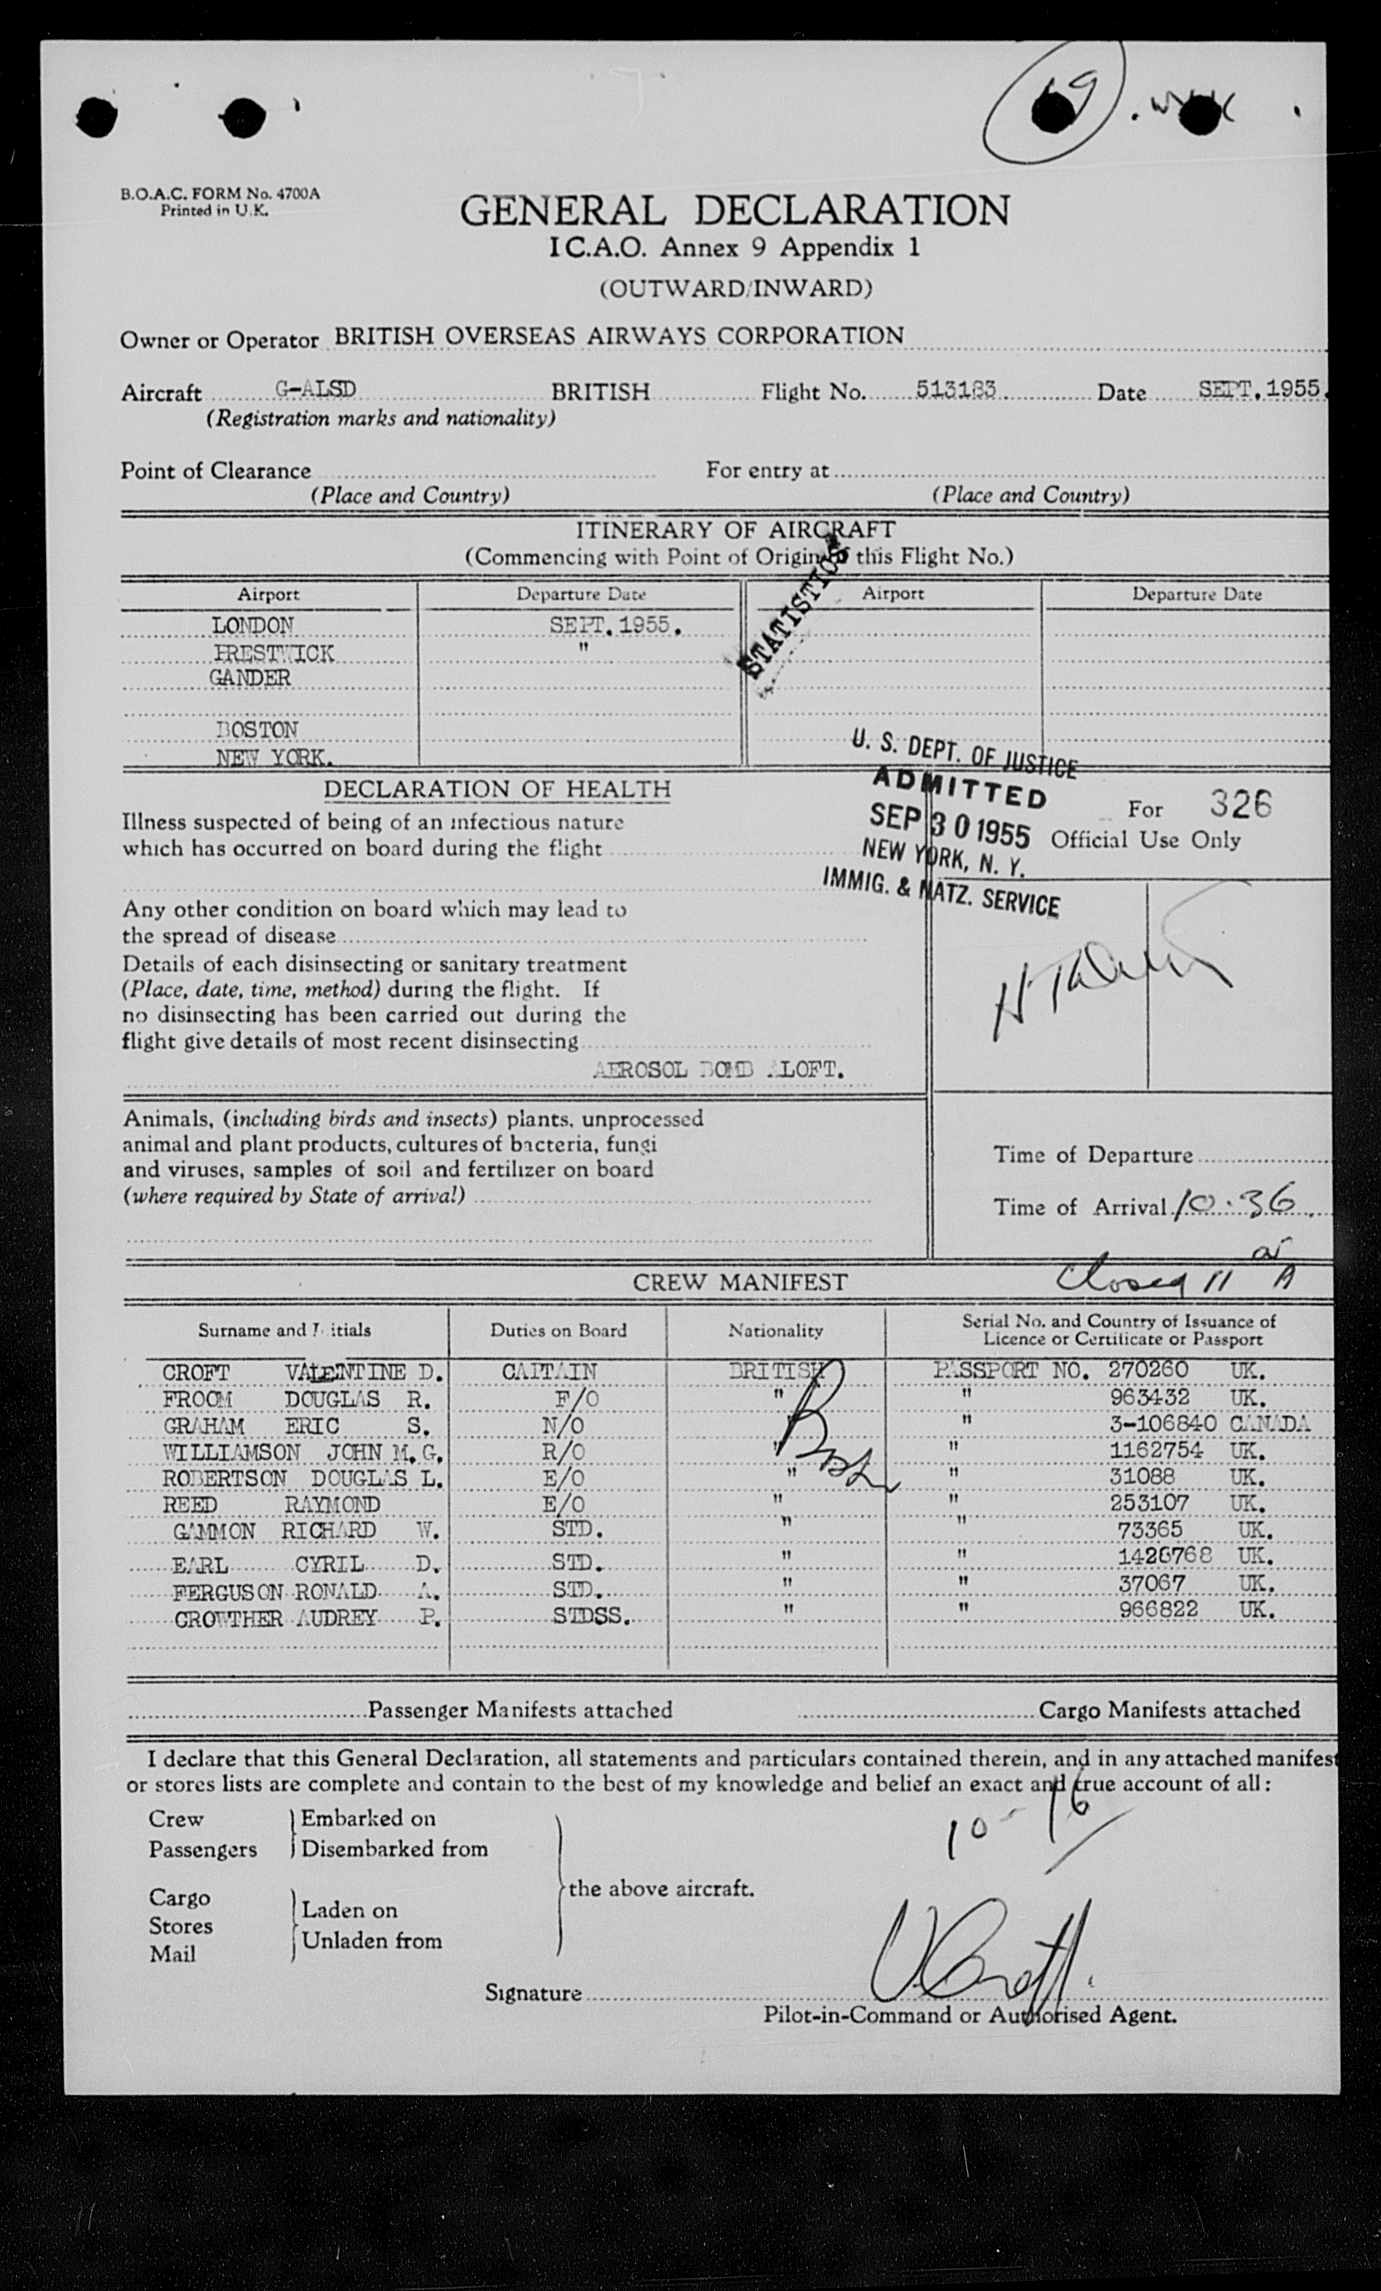 B.O.A.C. FORM No. 4700A
Printed in U.K.
GENERAL DECLARATION
I C.A.O. Annex 9 Appendix 1
(OUTWARD/INWARD)
Owner or Operator BRITISH OVERSEAS AIRWAYS CORPORATION
Aircraft G-ALSD BRITISH Flight No. 513183 Date SEPT. 1955.
(Registration marks and nationality)
Point of Clearance For entry at
(Place and Country) (Place and Country)
ITINERARY OF AIRCRAFT
(Commencing with Point of Origin of this Flight No.)
STATISTICS
Airport Departure Date Airport Departure Date
LONDON SEPT. 1955.
PRESTWICK "
GANDER
BOSTON
NEW YORK.
U. S. DEPT. OF JUSTICE
ADMITTED
SEP 30 1955
NEW YORK, N. Y.
IMMIG. & NATZ. SERVICE
For 326
Official Use Only
DECLARATION OF HEALTH
Illness suspected of being of an infectious nature
which has occurred on board during the flight
Any other condition on board which may lead to
the spread of disease
Details of each disinsecting or sanitary treatment
(Place, date, time, method) during the flight. If
no disinsecting has been carried out during the
flight give details of most recent disinsecting
AEROSOL BOMB ALOFT.
Animals, (including birds and insects) plants, unprocessed
animal and plant products, cultures of bacteria, fungi
and viruses, samples of soil and fertilizer on board
(where required by State of arrival)
Time of Departure
Time of Arrival 10.36
Closed 11
CREW MANIFEST
Surname and Initials Duties on Board Nationality Serial No. and Country of Issuance of
Licence or Certificate or Passport
CROFT VALENTINE D. CAPTAIN BRITISH PASSPORT NO. 270260 UK.
FROOM DOUGLAS R. F/O " " 963432 UK.
GRAHAM ERIC S. N/O " " 3-106840 CANADA
WILLIAMSON JOHN M.G. R/O " " 1162754 UK.
ROBERTSON DOUGLAS L. E/O " " 31088 UK.
REED RAYMOND E/O " " 253107 UK.
GAMMON RICHARD W. STD. " " 73365 UK.
EARL CYRIL D. STD. " " 1426768 UK.
FERGUSON RONALD A. STD. " " 37067 UK.
CROWTHER AUDREY P. STDSS. " " 966822 UK.
Passenger Manifests attached Cargo Manifests attached
I declare that this General Declaration, all statements and particulars contained therein, and in any attached manifest
or stores lists are complete and contain to the best of my knowledge and belief an exact and true account of all:
10-16
Crew Embarked on
Passengers Disembarked from
the above aircraft.
Cargo
Stores Laden on
Mail Unladen from
Signature V. Croft.
Pilot-in-Command or Authorised Agent.